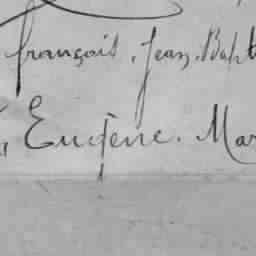 françois, Jean Bapt
Eugène. Mar